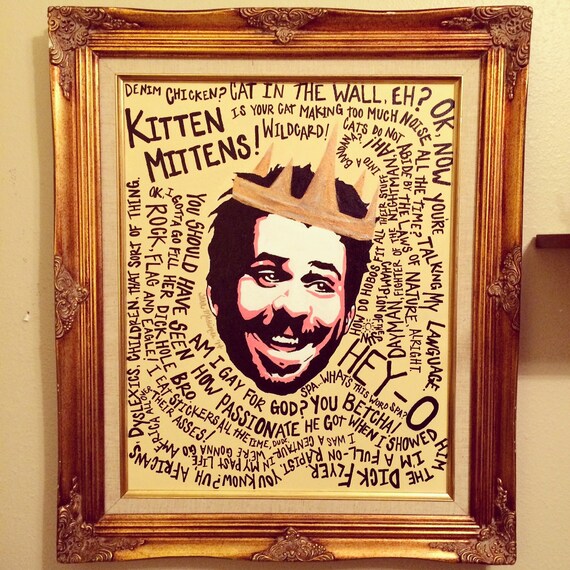 DENIM CHICKEN? CAT IN THE WALL, EH? OK, NOW YOU'RE TALKING MY LANGUAGE.
KITTEN
MITTENS!
IS YOUR CAT MAKING TOO MUCH NOISE ALL THE TIME?
WILDCARD!
CATS DO NOT ABIDE BY THE LAWS OF NATURE, ALRIGHT.
DAYMAN, FIGHTER OF THE NIGHTMAN, AH!
CHAMPION OF THE SUN
HOW DO HOBOS FIT ALL THEIR STUFF INTO A BANDANA?
HEY-O
YOU SHOULD HAVE SEEN HOW PASSIONATE HE GOT WHEN I SHOWED HIM THE DICK FLYER
I GOTTA GO FILL HER DICK HOLE BRO
OK, ROCK, FLAG AND EAGLE!
AM I GAY FOR GOD? YOU BETCHA!
SPA-WHATS THIS WORD SPA?
I EAT STICKERS ALL THE TIME, DUDE
I WAS A CENTAUR IN MY PAST LIFE
I'M A FULL-ON RAPIST, YOU KNOW? UH, AFRICANS, DYSLEXICS, CHILDREN, THAT SORT OF THING.
WE'RE GONNA GO AMERICA ALL OVER THEIR ASSES!